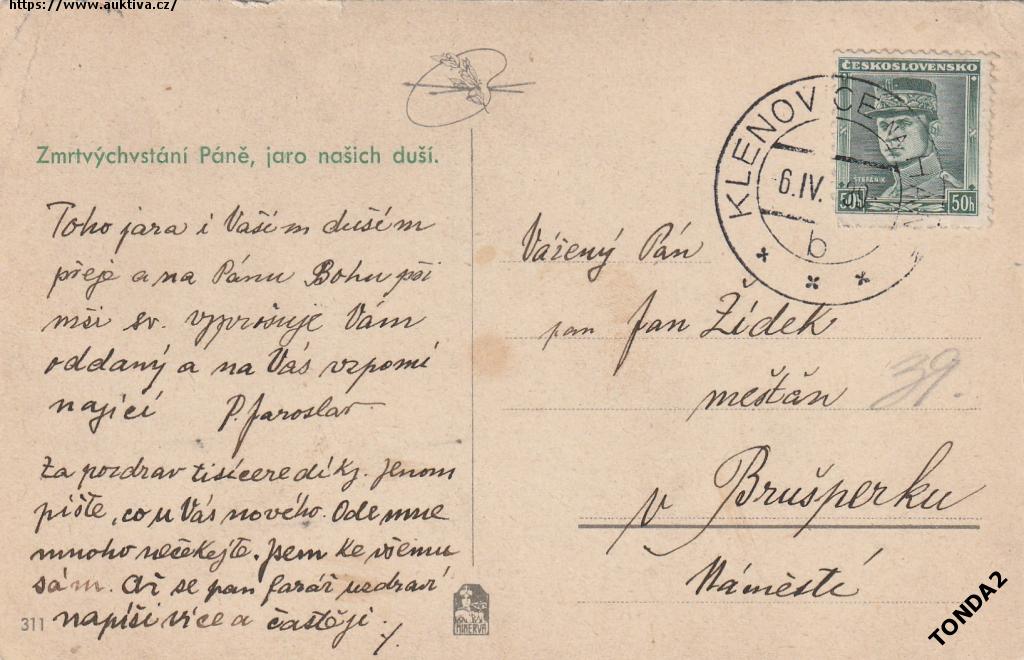 https://www.auktiva.cz/
Zmrtvýchvstání Páně, jaro našich duší.
Toho jara i Vašim duším
přeje a na Pánu Bohu při
mši sv. vyprošuje Vám
oddaný a na Vás vzpomí
nající P. Jaroslav.
Za pozdrav tisíceré díky. Jenom
pište, co u Vás nového. Ode mne
mnoho nečekejte. Jsem ke všemu
sám. Až se pan farář uzdraví
napíši více a častěji.
311
MINERVA
ČESKOSLOVENSKO
ŠTEFÁNIK
50h 50h
KLENOVICE NA HANÉ
6.IV.
b
Vážený Pán
pan Jan Žídek
měšťan
39.
v Brušperku
Náměstí
TONDA2